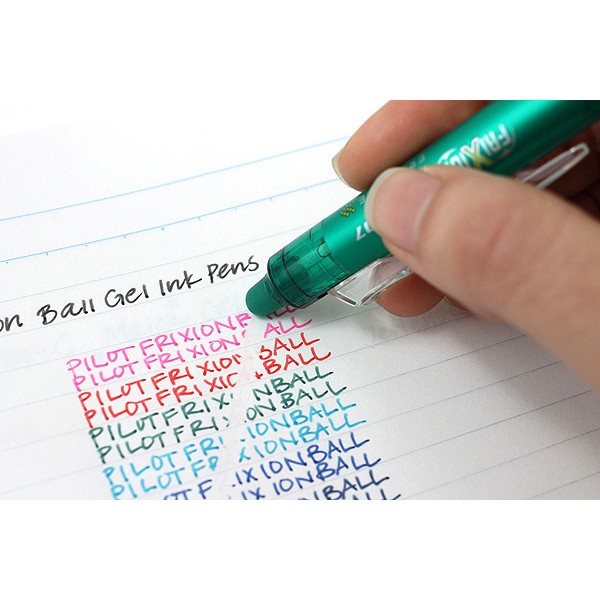 FRIXION
07
on Ball Gel Ink Pens
PILOT FRIXION B LL
PILOT FRIXION ALL
PILOT FRIXION BALL
PILOT FRIXIO BALL
PILOT FRIXI NBALL
PILOT FRIX ON BALL
PILOT FRI IONBALL
PILOT FR XIONBALL
OT FR IXIONBALL
IXIONBALL
NBALL